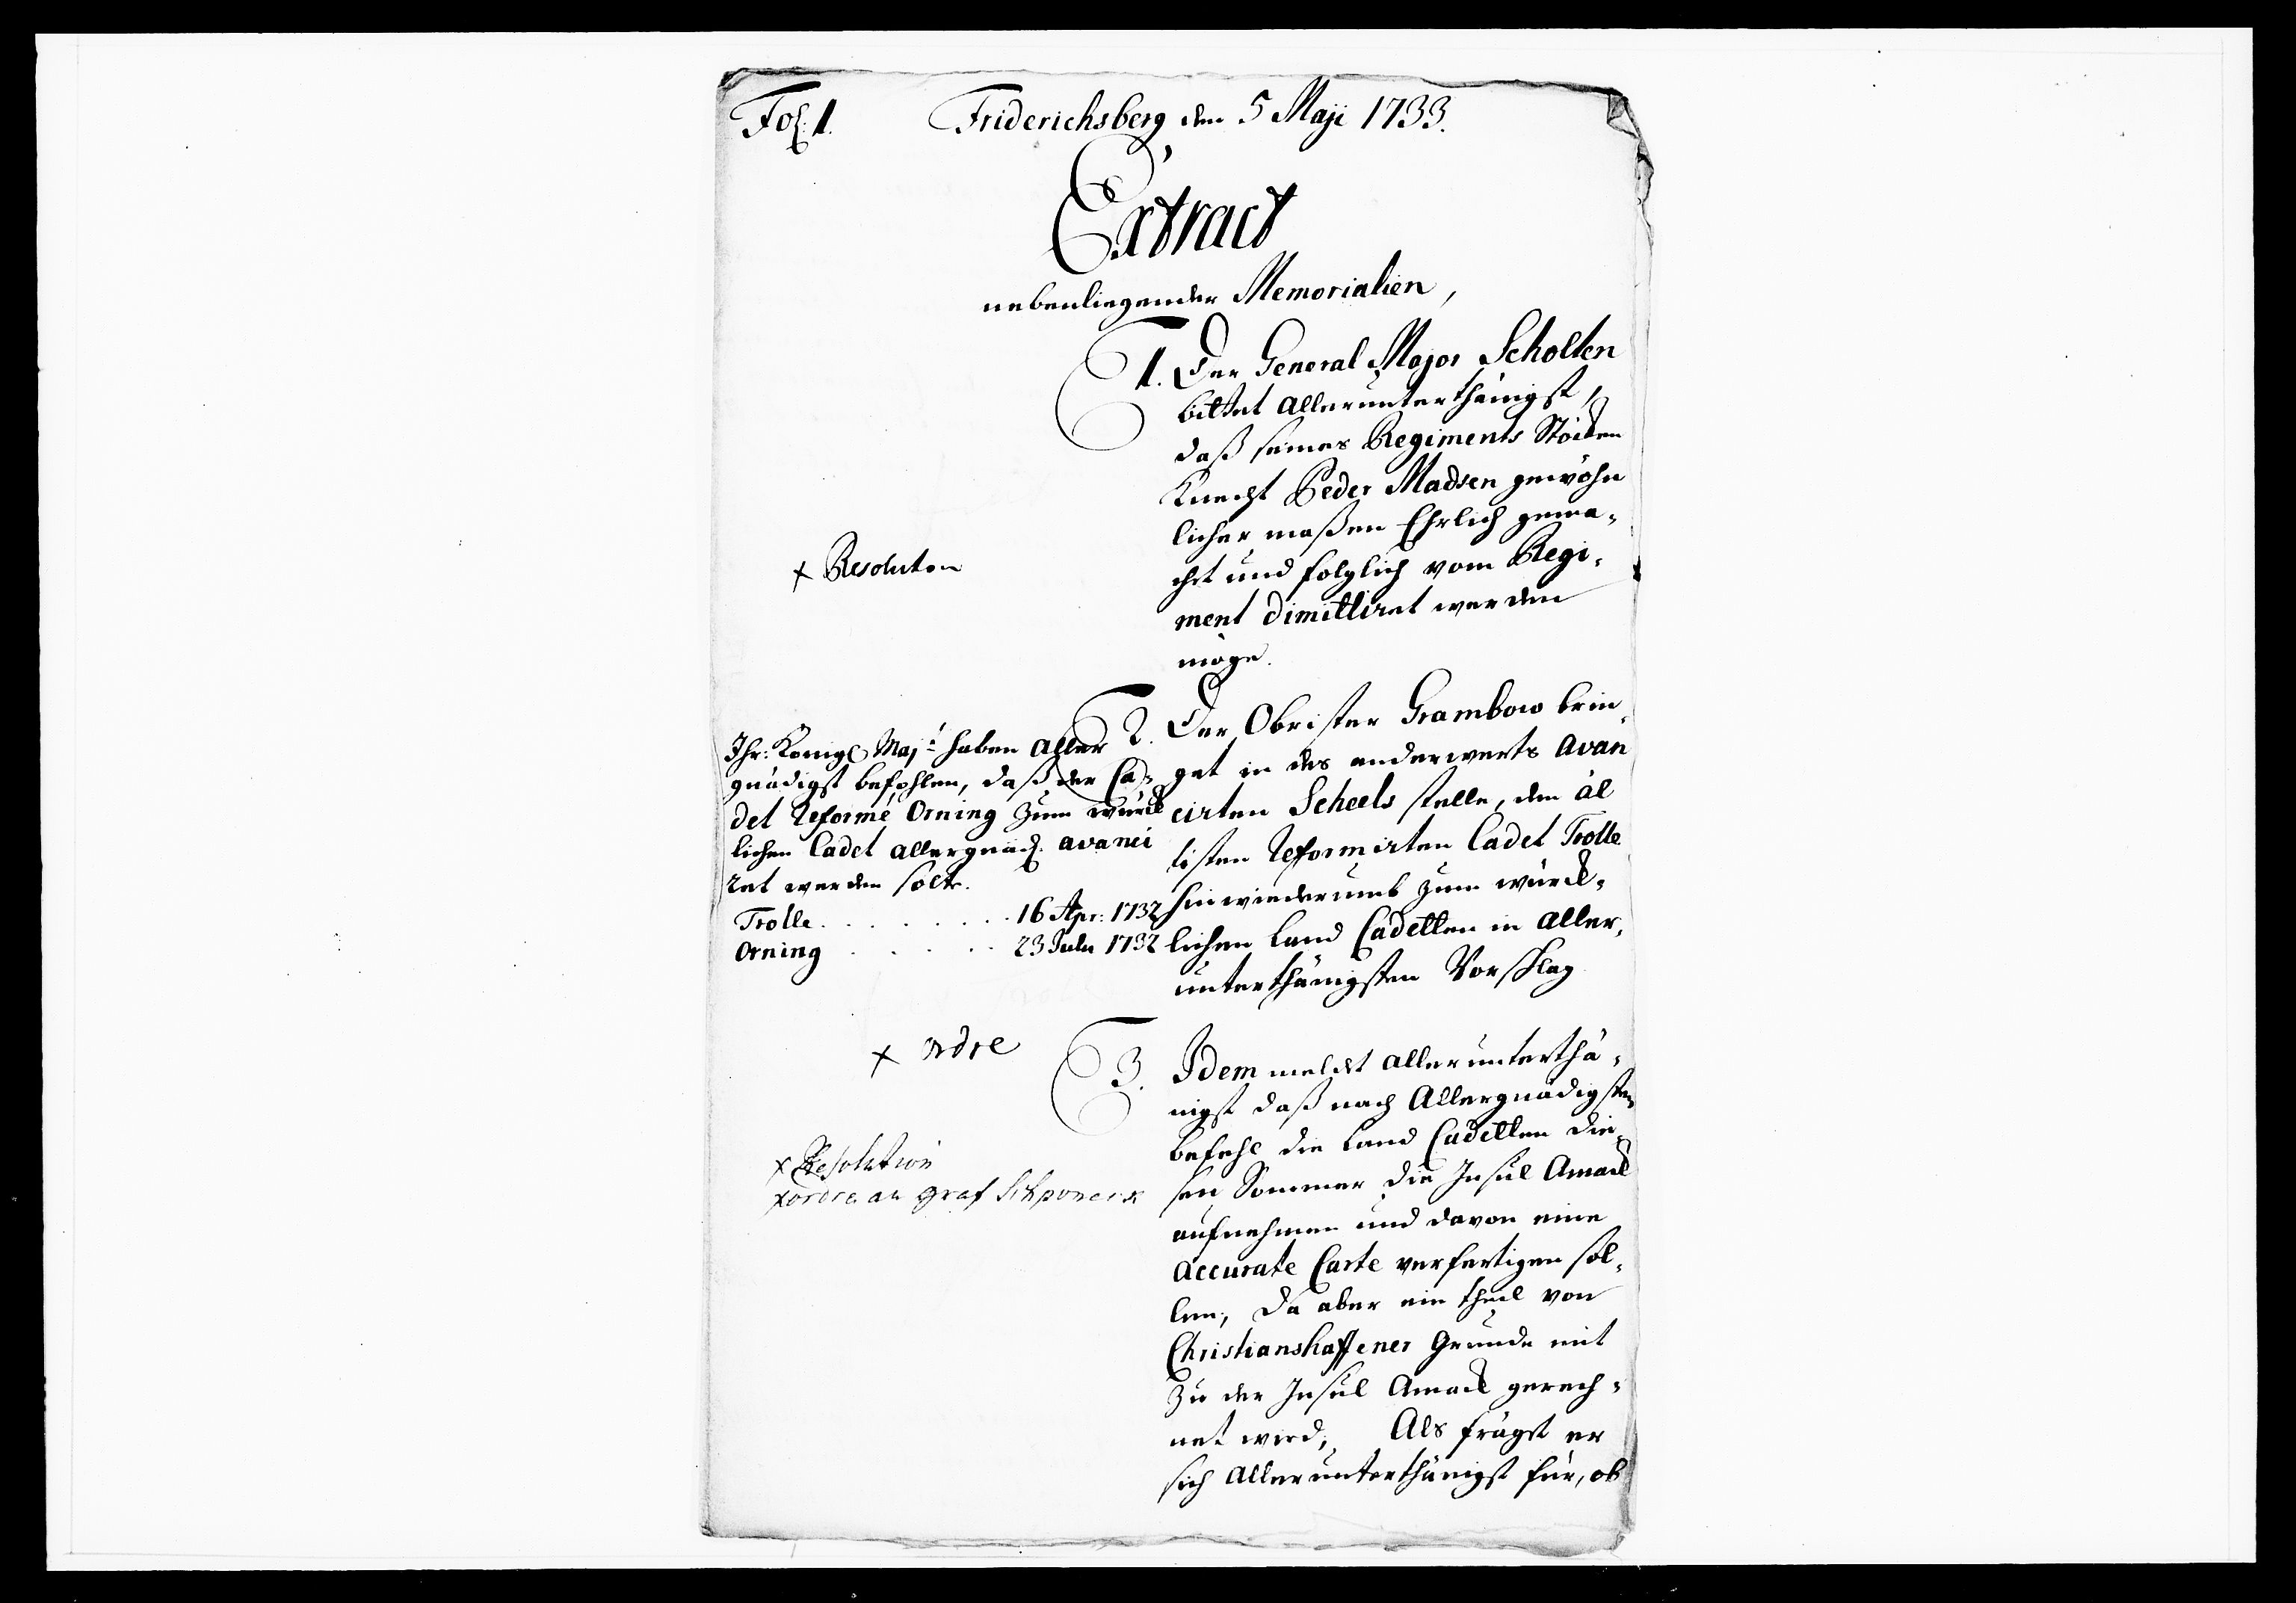 Fol: 1. Friderichsberg den 5 Maji 1733.
Extract
nebenliegender Memorialien,
1. Der General Major Scholten
bittet allerunterthänigst,
daß seines Regiments Stöcken
Knecht Peder Madsen gewöhn
licher maßen Ehrlich gema-
cht und folglich vom Regi-
ment dimittiret werden
möge.
x Resolution
2. Der Obrister Grambow brin-
get in des anderwerts avan
cirten Scheels stelle, den äl
tisten Reformirten Cadet Trolle
hinwiederumb zum würck-
lichen Land Cadetten in aller-
unterthänigsten Vorschlag
Ihr: Königl Maj:t haben aller
gnädigst befohlen, daß der Ca-
det Reformé Orning zum würck
lichen Cadet allergnäd. avanci
ret werden solte.
Trolle . . . . . . . . 16 Apr: 1732
Orning . . . . . 23 July 1732
x ordre
3. Idem meldet allerunterthä-
nigst daß nach Allergnädigsten
befehl die Land Cadetten die-
sen Sommer die Insul Amack
aufnehmen und davon eine
accurate Carte verfertigen sol-
len, da aber ein theil von
Christianshaffener Grunde mit
zu der Insul Amack gerech-
net wird, Als frägst er
sich allerunterthänigst für, ob
x Resolution
x ordre an graf